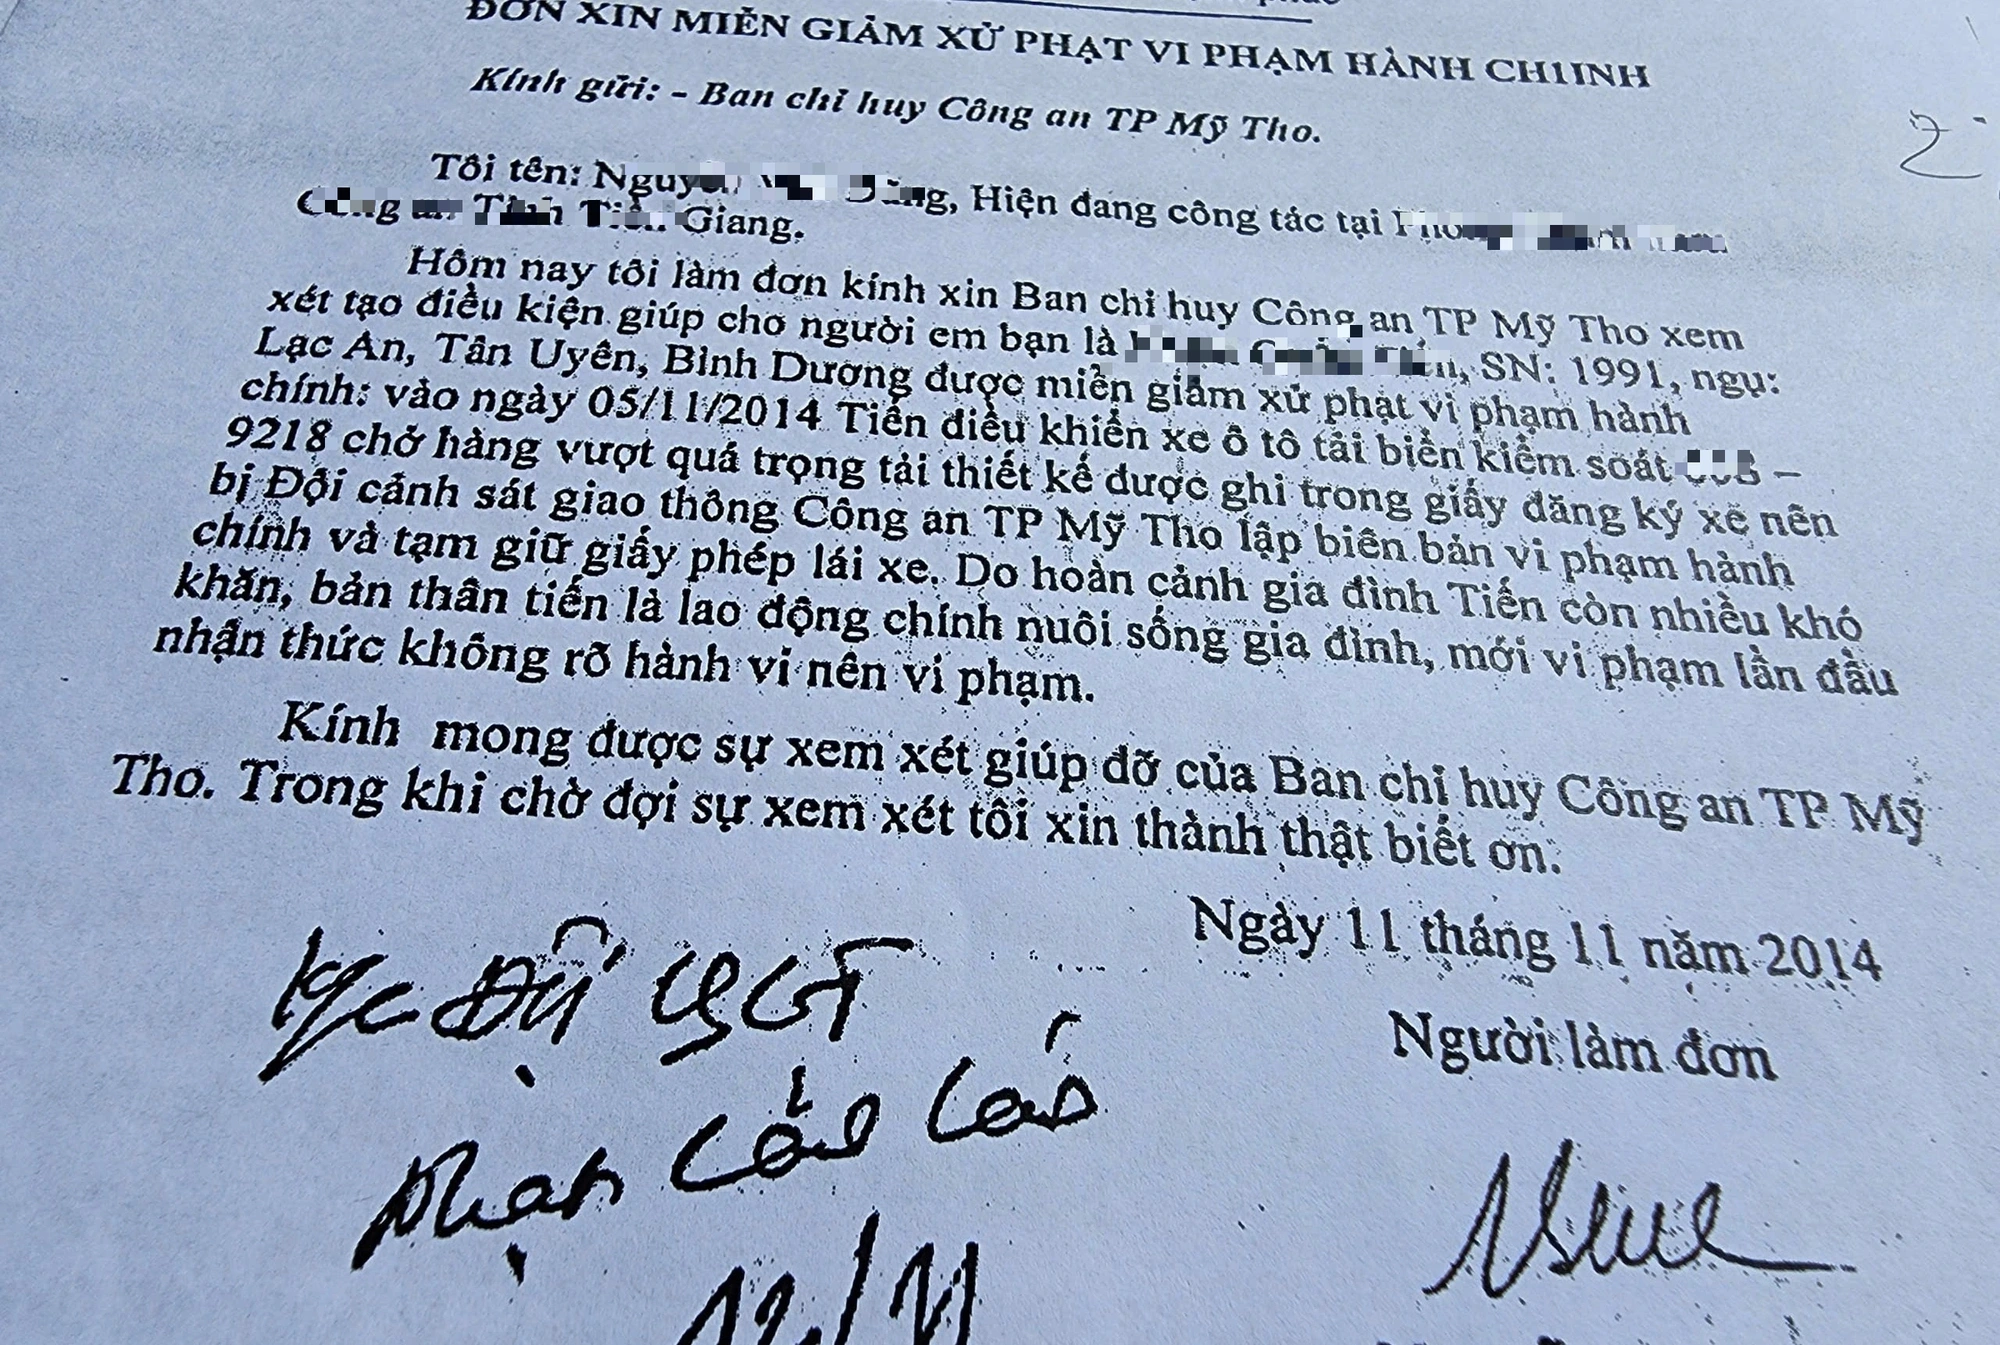 ĐƠN XIN MIỄN GIẢM XỬ PHẠT VI PHẠM HÀNH CH1INH
Kính gửi: - Ban chỉ huy Công an TP Mỹ Tho.
Tôi tên: Hiện đang công tác tại
Giang.
Hôm nay tôi làm đơn kính xin Ban chỉ huy Công an TP Mỹ Tho xem
xét tạo điều kiện giúp cho người em bạn là SN: 1991, ngụ:
Lạc An, Tân Uyên, Bình Dương được miễn giảm xử phạt vi phạm hành
chính: vào ngày 05/11/2014 Tiến điều khiển xe ô tô tải biển kiểm soát –
9218 chở hàng vượt quá trọng tải thiết kế được ghi trong giấy đăng ký xe nên
bị Đội cảnh sát giao thông Công an TP Mỹ Tho lập biên bản vi phạm hành
chính và tạm giữ giấy phép lái xe. Do hoàn cảnh gia đình Tiến còn nhiều khó
khăn, bản thân tiến là lao động chính nuôi sống gia đình, mới vi phạm lần đầu
nhận thức không rõ hành vi nên vi phạm.
Kính mong được sự xem xét giúp đỡ của Ban chỉ huy Công an TP Mỹ
Tho. Trong khi chờ đợi sự xem xét tôi xin thành thật biết ơn.
Ngày 11 tháng 11 năm 2014
Người làm đơn
CSGT
Phạt cảnh cáo
12/11